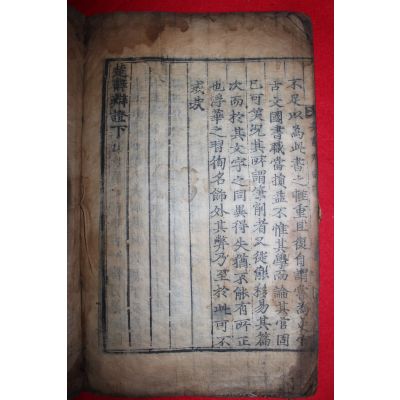 不足以為此書之輕重且復自謂嘗為史官
古文國書職當損益不惟其學而論其官固
已可笑況其所謂筆削者又徒能移易其篇
次而於其文字之同異得失猶不能有所正
也浮華之習徇名飾外其弊乃至於此可不
戒哉
楚辭辯證下